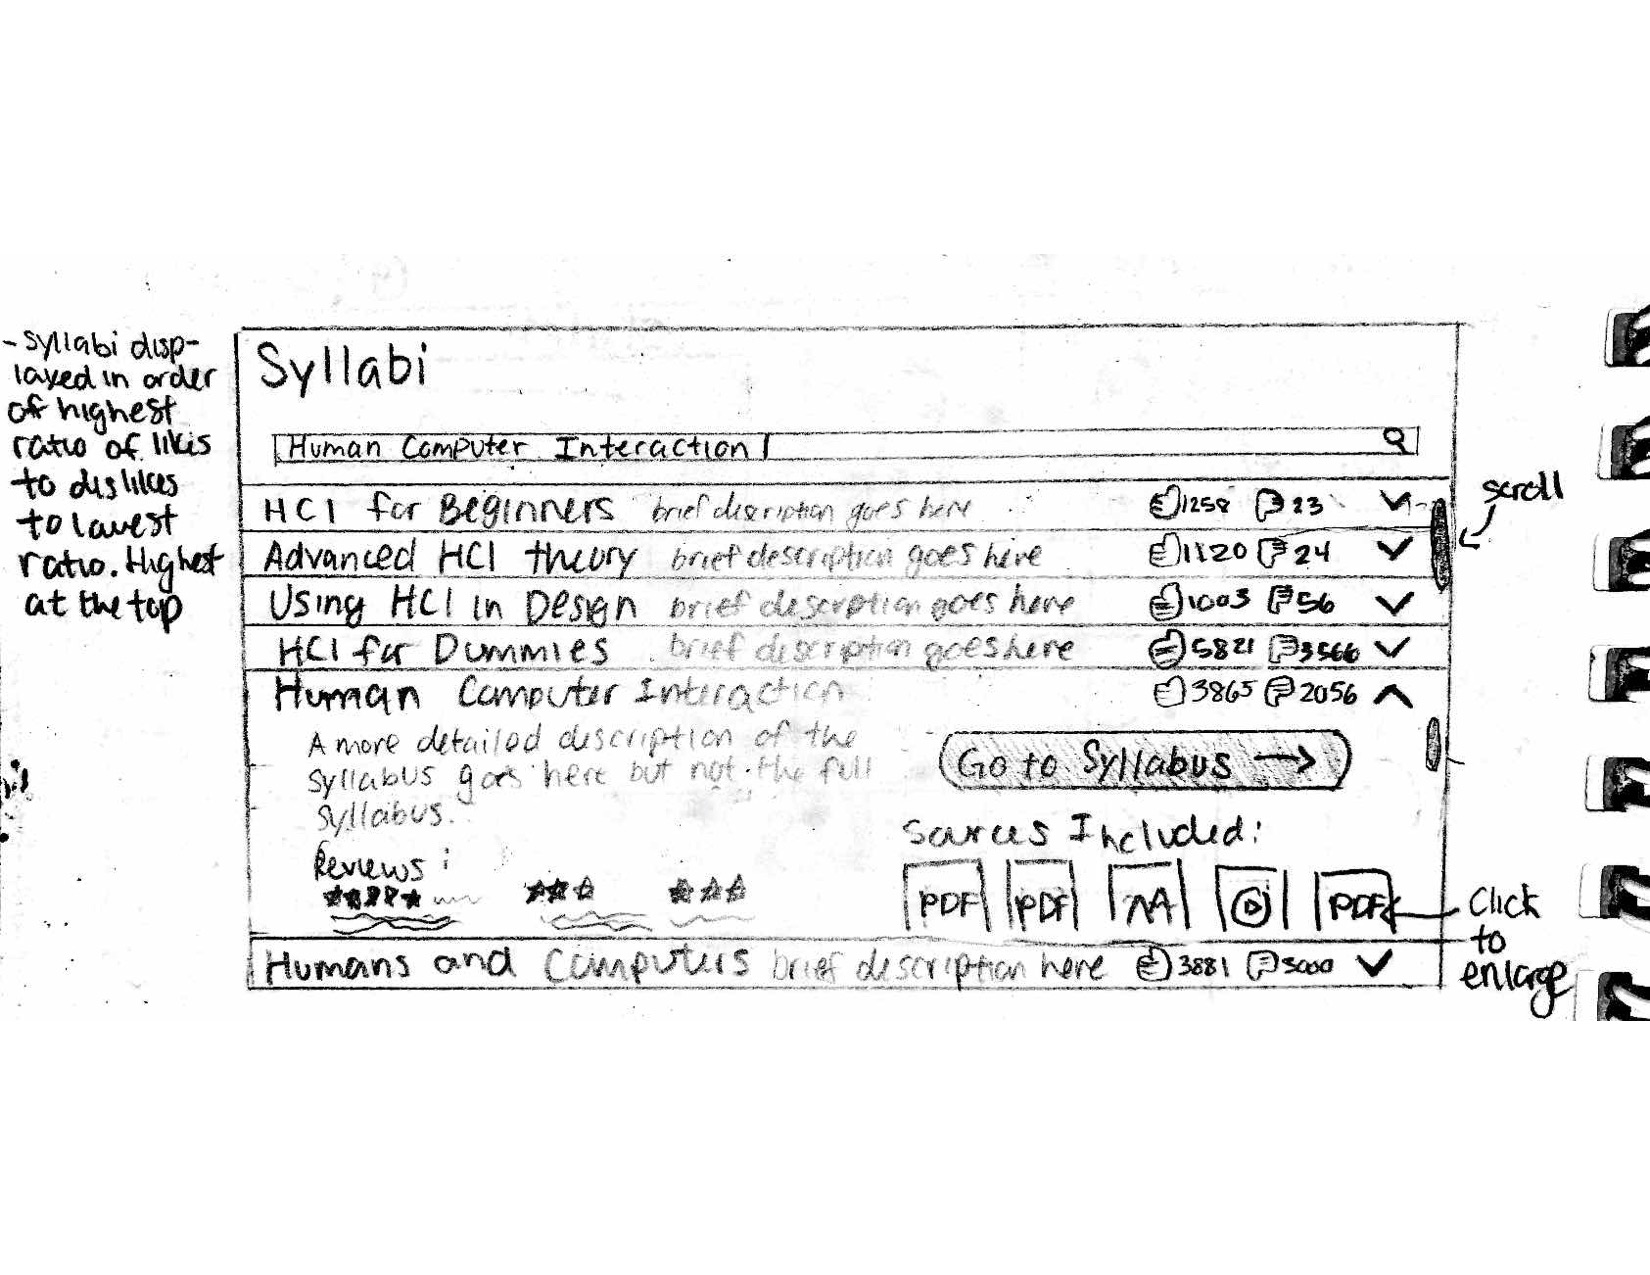 - Syllabi disp-
layed in order
of highest
ratio of likes
to dislikes
to lowest
ratio. Highest
at the top
Syllabi
Human Computer Interaction
HCI for Beginners brief description goes here 1258 23
Advanced HCI theory brief description goes here 1120 24
Using HCI in Design brief description goes here 1003 56
HCI for Dummies brief description goes here 5821 3566
Human Computer Interaction 3865 2056
A more detailed description of the
syllabus goes here but not the full
syllabus.
Go to Syllabus →
Reviews:
Sources Included:
PDF PDF PDF
Humans and Computers brief description here 3881 3000
scroll
Click
to
enlarge